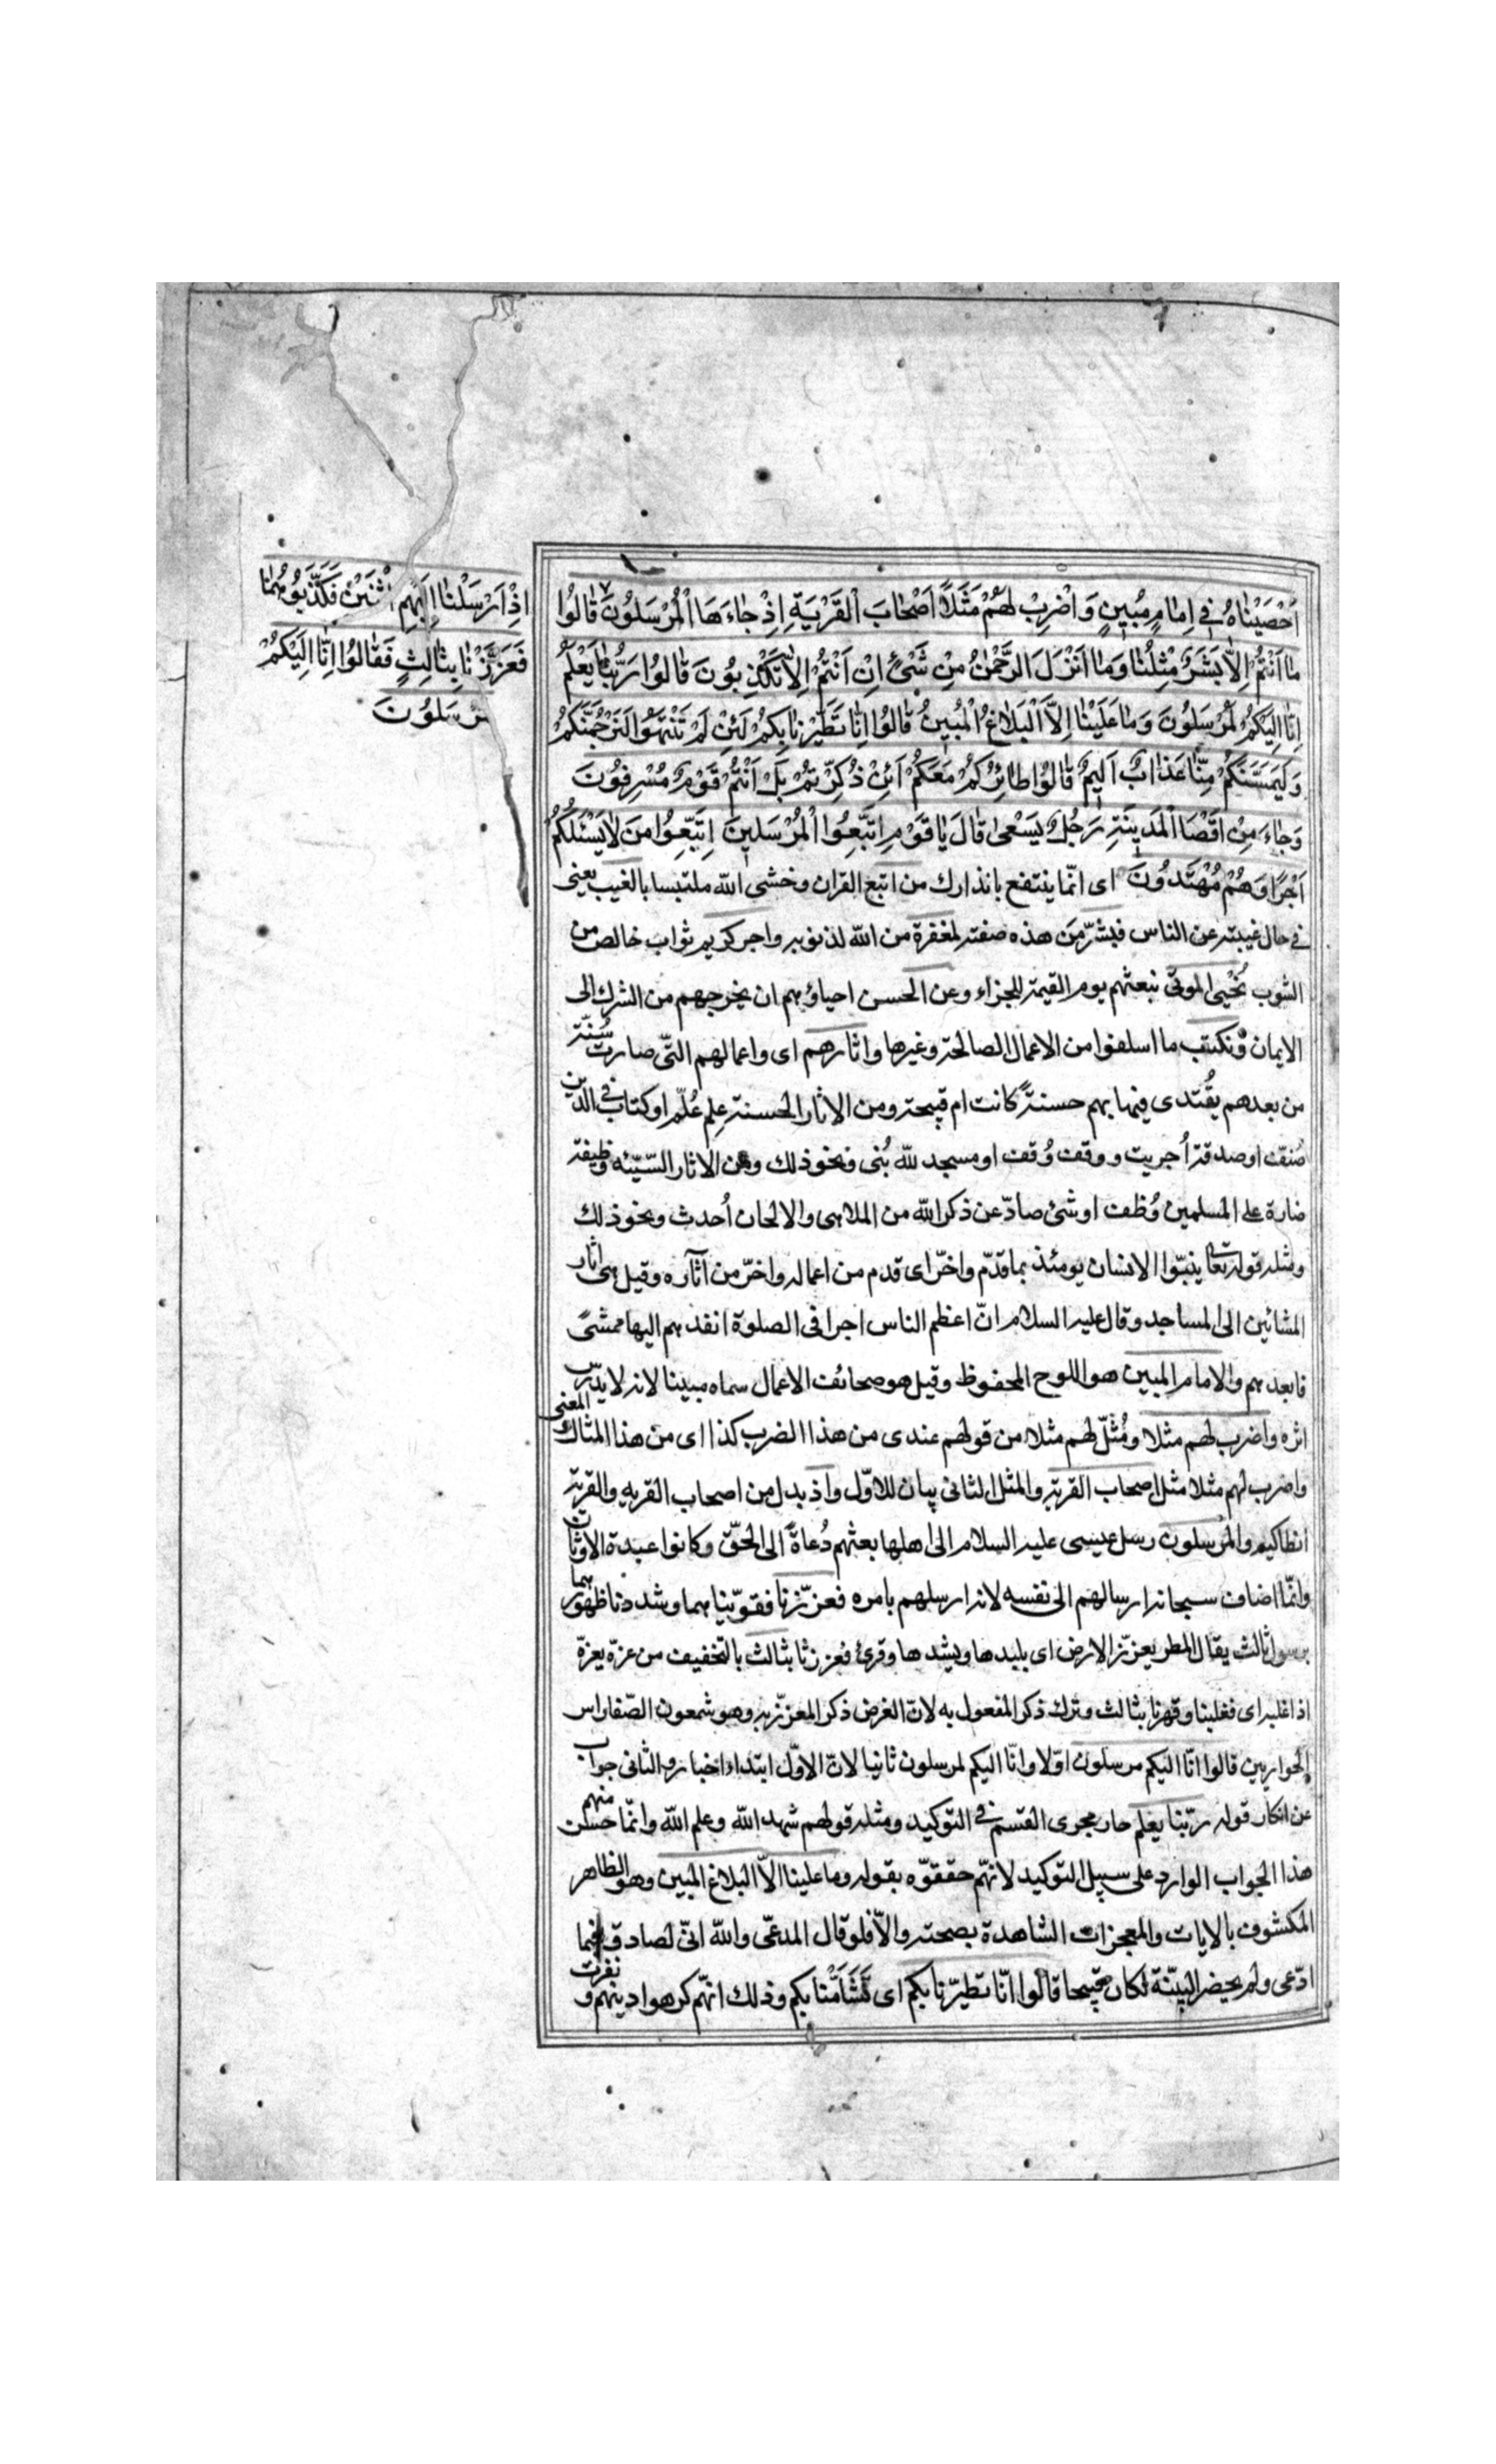 اَحْصَيْنٰاهُ فِي اِمٰامٍ مُبِينٍ وَاضْرِبْ لَهُمْ مَثَلًا اَصْحٰابَ الْقَرْيَةِ اِذْ جٰاءَهَا الْمُرْسَلُونَ قٰالُوا
مٰا اَنْتُمْ اِلّٰا بَشَرٌ مِثْلُنٰا وَمٰا اَنْزَلَ الرَّحْمٰنُ مِنْ شَيْئٍ اِنْ اَنْتُمْ اِلّٰا تَكْذِبُونَ قٰالُوا رَبُّنٰا يَعْلَمُ
اِنّٰا اِلَيْكُمْ لَمُرْسَلُونَ وَمٰا عَلَيْنٰا اِلَّا الْبَلٰاغُ الْمُبِينُ قٰالُوا اِنّٰا تَطَيَّرْنٰا بِكُمْ لَئِنْ لَمْ تَنْتَهُوا لَنَرْجُمَنَّكُمْ
وَلَيَمَسَّنَّكُمْ مِنّٰا عَذٰابٌ اَلِيمٌ قٰالُوا طٰائِرُكُمْ مَعَكُمْ اَئِنْ ذُكِّرْتُمْ بَلْ اَنْتُمْ قَوْمٌ مُسْرِفُونَ
وَجٰاءَ مِنْ اَقْصَا الْمَدِينَةِ رَجُلٌ يَسْعىٰ قٰالَ يٰا قَوْمِ اتَّبِعُوا الْمُرْسَلِينَ اِتَّبِعُوا مَنْ لٰا يَسْئَلُكُمْ
اَجْرًا وَهُمْ مُهْتَدُونَ اى انّما ينتفع بانذارك من اتبع القران وخشى اللّه ملتبسا بالغيب يعنى
فى حال غيبته عن الناس فبشّر مَن هذه صفته لمغفرة من اللّه لذنوبه واجر كريم ثواب خالص من
الشوب نُحْيِى الموتى نبعثهم يوم القيمة للجزاء وعن الحسن احياؤهم ان يخرجهم من الشرك الى
الايمان ونكتب ما اسلفوا من الاعمال الصالحة وغيرها واثارهم اى واعمالهم التّى صارت سُنّة
من بعدهم يُقتدى فيها بهم حسنةً كانت ام قبيحة ومن الاثار الحسنة علم عُلّم او كتاب فى الدّين
صُنفّ او صدقة اُجريت ووقف وُقف او مسجد للّه بُنى ونحو ذلك ومن الاثار السّيّئه وظيفة
ضارة على المسلمين وُظفت او شئ صادّ عن ذكر اللّه من الملاهى والالحان اُحدث ونحو ذلك
ومثله قوله تعا ينبّوا الانسان يومئذ بما قدّم واخّر اى قدم من اعماله واخّر من آثاره وقيل هى اثار
المشائين الى المساجد وقال عليه السلام انّ اعظم الناس اجرا فى الصلوة ابعدهم اليها ممشىً
فابعدهم والامام المبين هو اللوح المحفوظ وقيل هو صحائف الاعمال سماه مبينا لانه لا يدرس
اثره واضرب لهم مثلا ومُثّل لهم مثلا من قولهم عندى من هذا الضرب كذا اى من هذا المثال والمعنى
واضرب لهم مثلا مثل اصحاب القرية والمثل الثانى بيان للاوّل واذ بدل من اصحاب القريه والقرية
انطاكيه والمرسلون رسل عيسى عليه السلام الى اهلها بعثهم دُعاةً الى الحقّ وكانوا عبدة الاوثان
وانمّا اضاف سبحانه ارسالهم الى نفسه لانه ارسلهم بامره فعزّزنا فقوّينا هما وشددنا ظهورهما
برسول ثالث يقال المطر يعزّز الارض اى يلبدها ويشدها وقرئ فعززنا بثالث بالتخفيف من عزّه يعزّه
اذا غلبه اى فغلبنا وقهرنا بثالث وترك ذكر المفعول به لانّ الغرض ذكر المعزّز به وهو شمعون الصّفا راس
الحواريين قالوا انّا اليكم مرسلون اوّلا وانّا اليكم لمرسلون ثانيا لانّ الاوّل ابتداء اخبار والثانى جواب
عن انكار قوله ربّنا يعلم جار مجرى القسم فى التوكيد ومثله قولهم شهد اللّه وعلم اللّه وانمّا حسن منهم
هذا الجواب الوارد على سبيل التوكيد لانهّم حققوّه بقوله وما علينا الاّ البلاغ المبين وهو الظاهر
المكشوف بالايات والمعجزات الشاهدة بصحته والاّ فلو قال المدعّى واللّه انىّ لصادق فيما
ادّعى ولم يحضر البيّنة لكان قبيحا قالوا انّا تطيّرنا بكم اى تَشَأَّمْنا بكم وذلك انهّم كرهوا دينهم ونفرت
اِذْ اَرْسَلْنٰا اِلَيْهِمِ اثْنَيْنِ فَكَذَّبُوهُمٰا
فَعَزَّزْنٰا بِثٰالِثٍ فَقٰالُوا اِنّٰا اِلَيْكُمْ
مُرْسَلُونَ